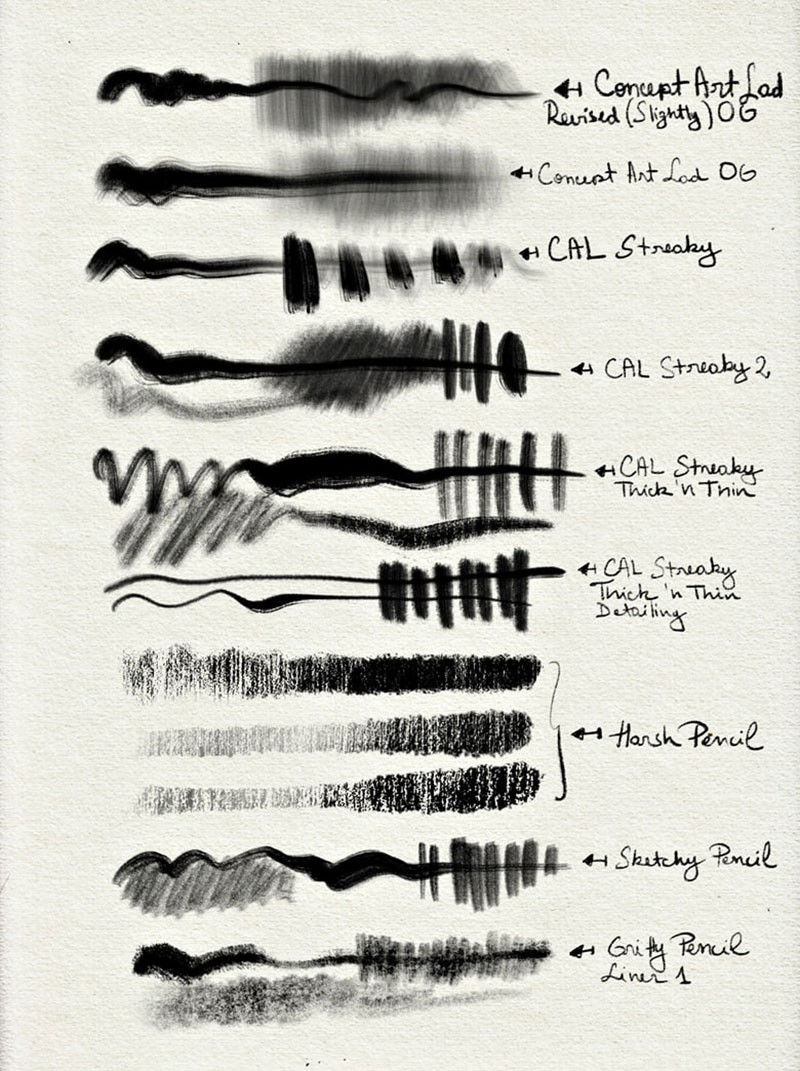 Concept Art Lad
Revised (Slightly) OG
Concept Art Lad OG
CAL Streaky
CAL Streaky 2
CAL Streaky
Thick 'n Thin
CAL Streaky
Thick 'n Thin
Detailing
Harsh Pencil
Sketchy Pencil
Gritty Pencil
Liner 1